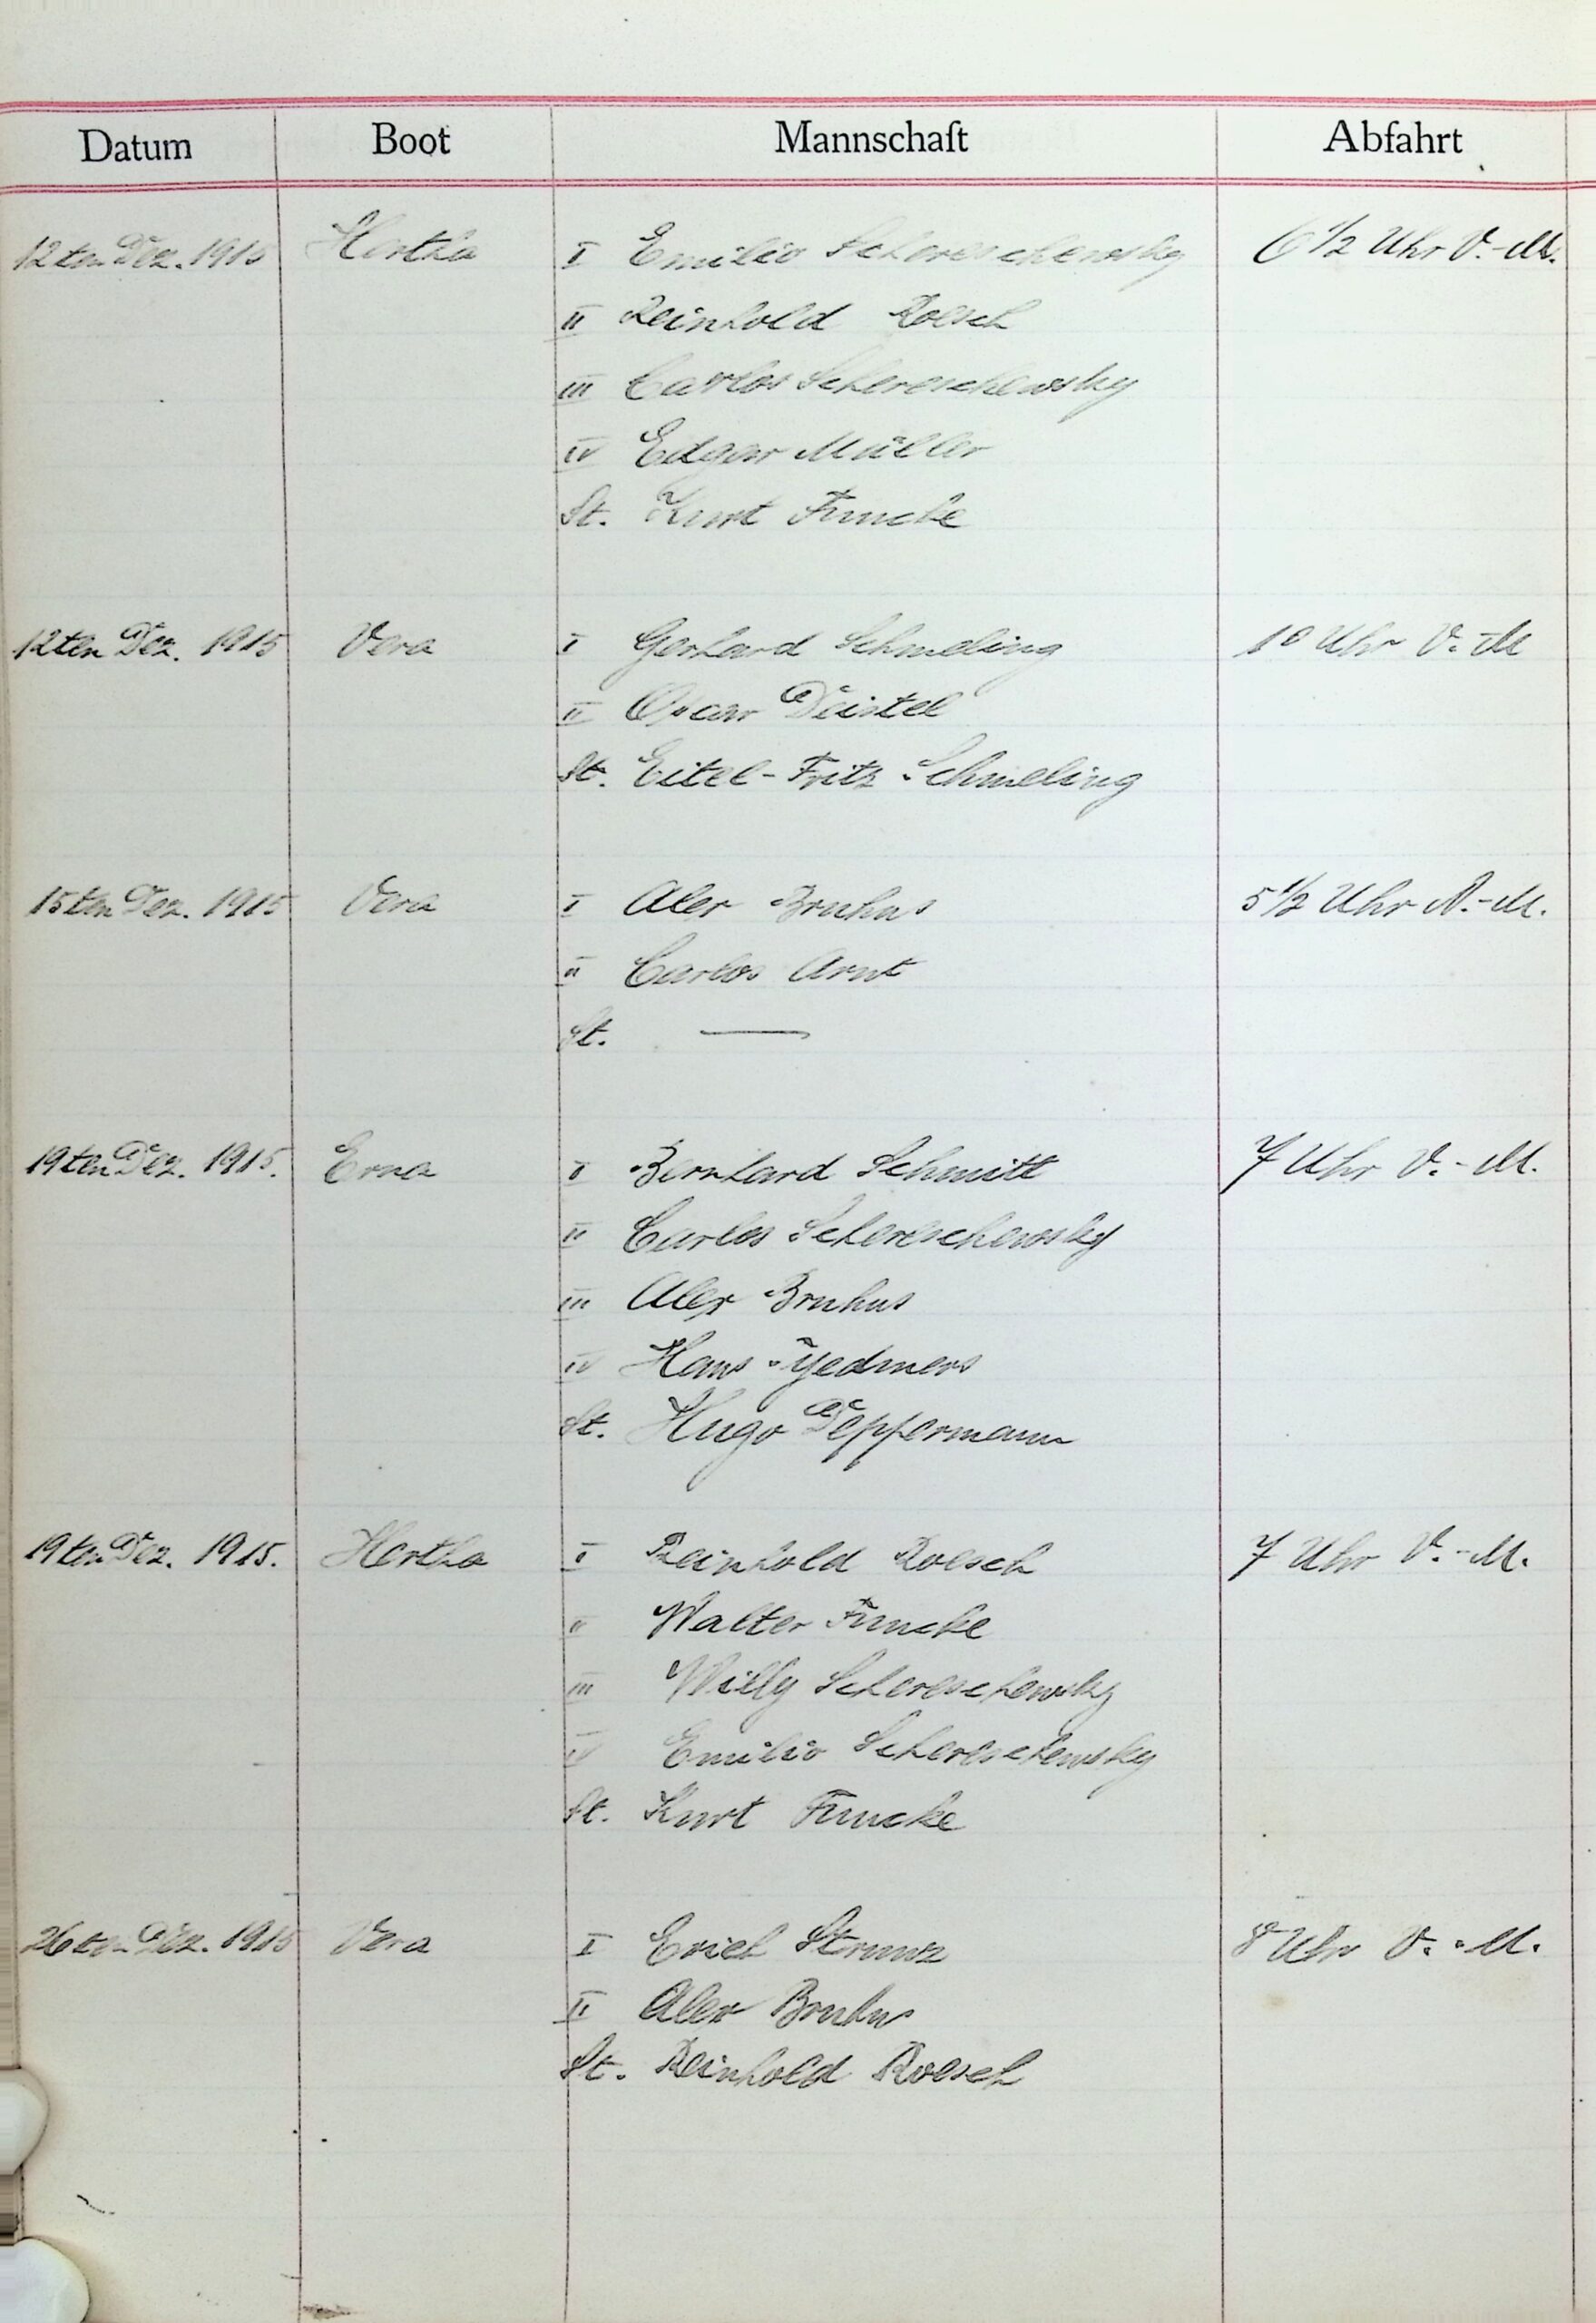 Datum Boot Mannschaft Abfahrt
12ten Dez. 1915 Hertha I Emilio Schereschewsky 6 1/2 Uhr V.-M.
II Reinhold Roesch
III Carlos Schereschewsky
IV Edgar Müller
St. Kurt Funcke
12ten Dez. 1915 Vera I Gerhard Schmeling 10 Uhr V.-M
II Oscar Deistel
St. Eitel-Fritz Schmeling
15ten Dez. 1915 Vera I Alex Bruhns 5 1/2 Uhr N.-M.
II Carlos Arnt
St. —
19ten Dez. 1915. Erna I Bernhard Schmitt 7 Uhr V.-M.
II Carlos Schereschewsky
III Alex Bruhns
IV Hans
St. Hugo Deppermann
19ten Dez. 1915. Hertha I Reinhold Roesch 7 Uhr V.-M.
II Walter Funcke
III Willy Schereschewsky
IV Emilio Schereschewsky
St. Kurt Funcke
26ten Dez. 1915 Vera I Erich 8 Uhr V.-M.
II Alex Bruhns
St. Reinhold Roesch